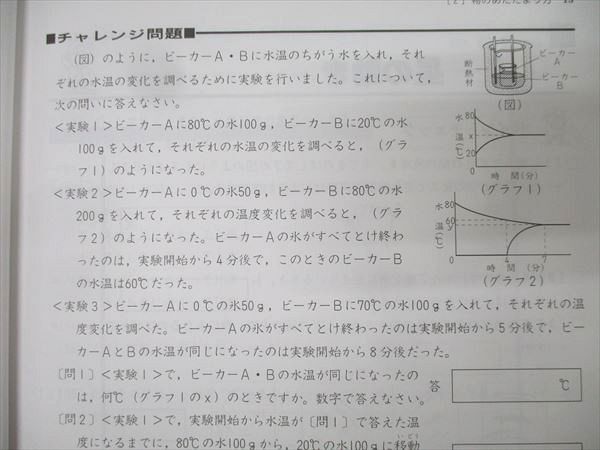 〔2〕物のあたたまり方 13
チャレンジ問題
(図)のように，ビーカーA・Bに水温のちがう水を入れ，それ
ぞれの水温の変化を調べるために実験を行いました。これについて，
次の問いに答えなさい。
断熱材
ビーカーA
ビーカーB
(図)
<実験1>ビーカーAに80℃の水100g，ビーカーBに20℃の水
100gを入れて，それぞれの水温の変化を調べると，(グラ
フ1)のようになった。
水温(℃)
80
x
20
時間(分)
(グラフ1)
<実験2>ビーカーAに0℃の氷50g，ビーカーBに80℃の水
200gを入れて，それぞれの温度変化を調べると，(グラ
フ2)のようになった。ビーカーAの氷がすべてとけ終わ
ったのは，実験開始から4分後で，このときのビーカーB
の水温は60℃だった。
水温(℃)
80
60
y
4
7
時間(分)
(グラフ2)
<実験3>ビーカーAに0℃の氷50g，ビーカーBに70℃の水100gを入れて，それぞれの温
度変化を調べた。ビーカーAの氷がすべてとけ終わったのは実験開始から5分後で，ビー
カーAとBの水温が同じになったのは実験開始から8分後だった。
〔問1〕<実験1>で，ビーカーA・Bの水温が同じになったの
は，何℃(グラフ1のx)のときですか。数字で答えなさい。
答
℃
〔問2〕<実験1>で，実験開始から水温が〔問1〕で答えた温
度になるまでに，80℃の水100gから，20℃の水100gに移動
いどう